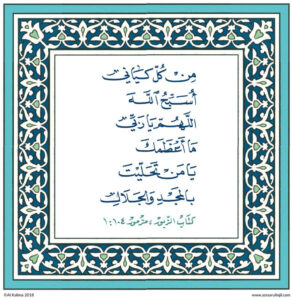 مِن كُلِّ كِيَانِي
أُسَبِّحُ اللهَ
اللَّهُمَّ يَا رَبِّي
مَا أَعْظَمَكَ
يَا مَن تَجَلَّيْتَ
بِالمَجْدِ وَالجَلَالِ
كتاب الزبور، مزمور ١٠٤:١
©Al Kalima 2018